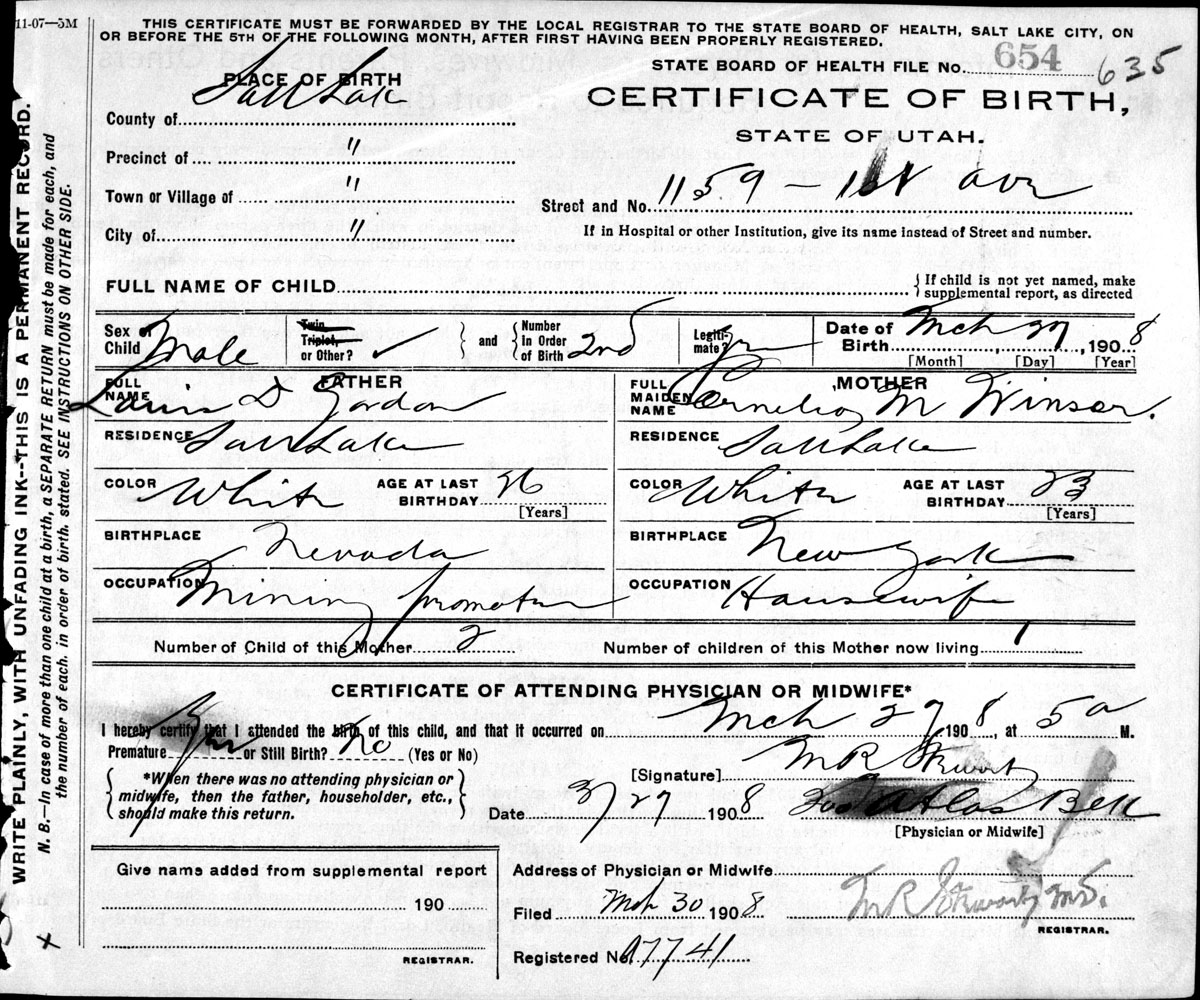 11-07—5M
THIS CERTIFICATE MUST BE FORWARDED BY THE LOCAL REGISTRAR TO THE STATE BOARD OF HEALTH, SALT LAKE CITY, ON
OR BEFORE THE 5TH OF THE FOLLOWING MONTH, AFTER FIRST HAVING BEEN PROPERLY REGISTERED.
WRITE PLAINLY, WITH UNFADING INK--THIS IS A PERMANENT RECORD.
N. B.—In case of more than one child at a birth, a SEPARATE RETURN must be made for each, and
the number of each, in order of birth, stated. SEE INSTRUCTIONS ON OTHER SIDE.
PLACE OF BIRTH
County of Salt Lake
Precinct of "
Town or Village of "
City of "
STATE BOARD OF HEALTH FILE No. 654 635
CERTIFICATE OF BIRTH,
STATE OF UTAH.
Street and No. 1159 – 1st ave
If in Hospital or other Institution, give its name instead of Street and number.
FULL NAME OF CHILD
If child is not yet named, make
supplemental report, as directed
Sex of Child Male
Twin, Triplet, or Other? ✓
and Number In Order of Birth 2nd
Legiti-mate? yes
Date of Birth Mch 27, 1908
[Month] [Day] [Year]
FATHER
FULL NAME Louis D Gordon
RESIDENCE Salt Lake
COLOR White AGE AT LAST BIRTHDAY 26 [Years]
BIRTHPLACE Nevada
OCCUPATION Mining promoter
MOTHER
FULL MAIDEN NAME Cornelia M Winsor.
RESIDENCE Salt Lake
COLOR White AGE AT LAST BIRTHDAY 23 [Years]
BIRTHPLACE New York
OCCUPATION Housewife
Number of Child of this Mother 2 Number of children of this Mother now living 1
CERTIFICATE OF ATTENDING PHYSICIAN OR MIDWIFE*
I hereby certify that I attended the birth of this child, and that it occurred on Mch 27 1908, at 5 a M.
Premature Yes or Still Birth? No (Yes or No)
*When there was no attending physician or
midwife, then the father, householder, etc.,
should make this return.
[Signature] M R
Date 3/27 1908 Atlas Bell
[Physician or Midwife]
Give name added from supplemental report
190
REGISTRAR.
Address of Physician or Midwife
Filed Mch 30 1908 M R M.D.
REGISTRAR.
Registered No. 17741